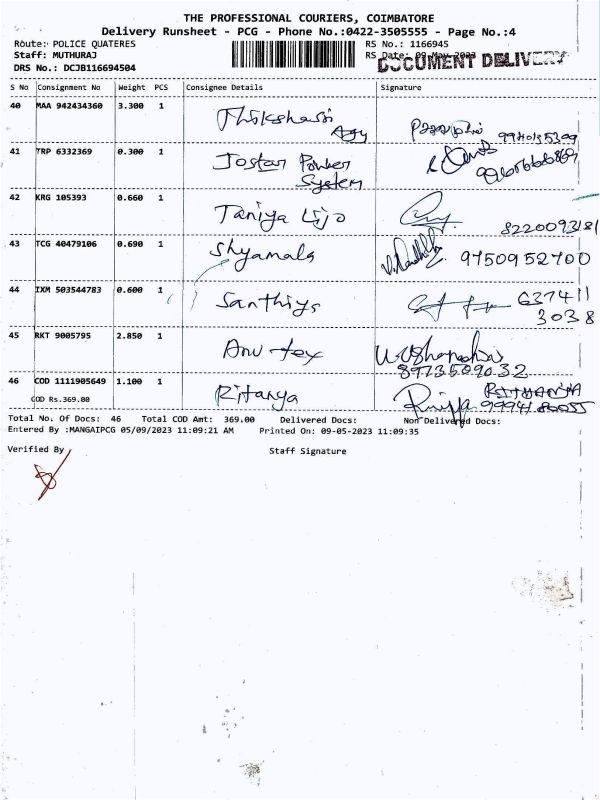 THE PROFESSIONAL COURIERS, COIMBATORE
Delivery Runsheet - PCG - Phone No.:0422-3505555 - Page No.:4
Route: POLICE QUATERES RS No.: 1166945
Staff: MUTHURAJ RS Date: 09-May-2023
DRS No.: DCJB116694504 DOCUMENT DELIVERY
S No Consignment No Weight PCS Consignee Details Signature
40 MAA 942434360 3.300 1
41 TRP 6332369 0.300 1 Jostan Power
System
42 KRG 105393 0.660 1 Taniya Lijo 8220093181
43 TCG 40479106 0.690 1 Shyamala 9750952700
44 IXM 503544783 0.600 1 Santhiya 637411
3038
45 RKT 9005795 2.850 1 Anu tex
8973509032
46 COD 1111905649 1.100 1 Ritanya
COD Rs.369.00 9994180055
Total No. Of Docs: 46 Total COD Amt: 369.00 Delivered Docs: Non Delivered Docs:
Entered By :MANGAIPCG 05/09/2023 11:09:21 AM Printed On: 09-05-2023 11:09:35
Verified By Staff Signature